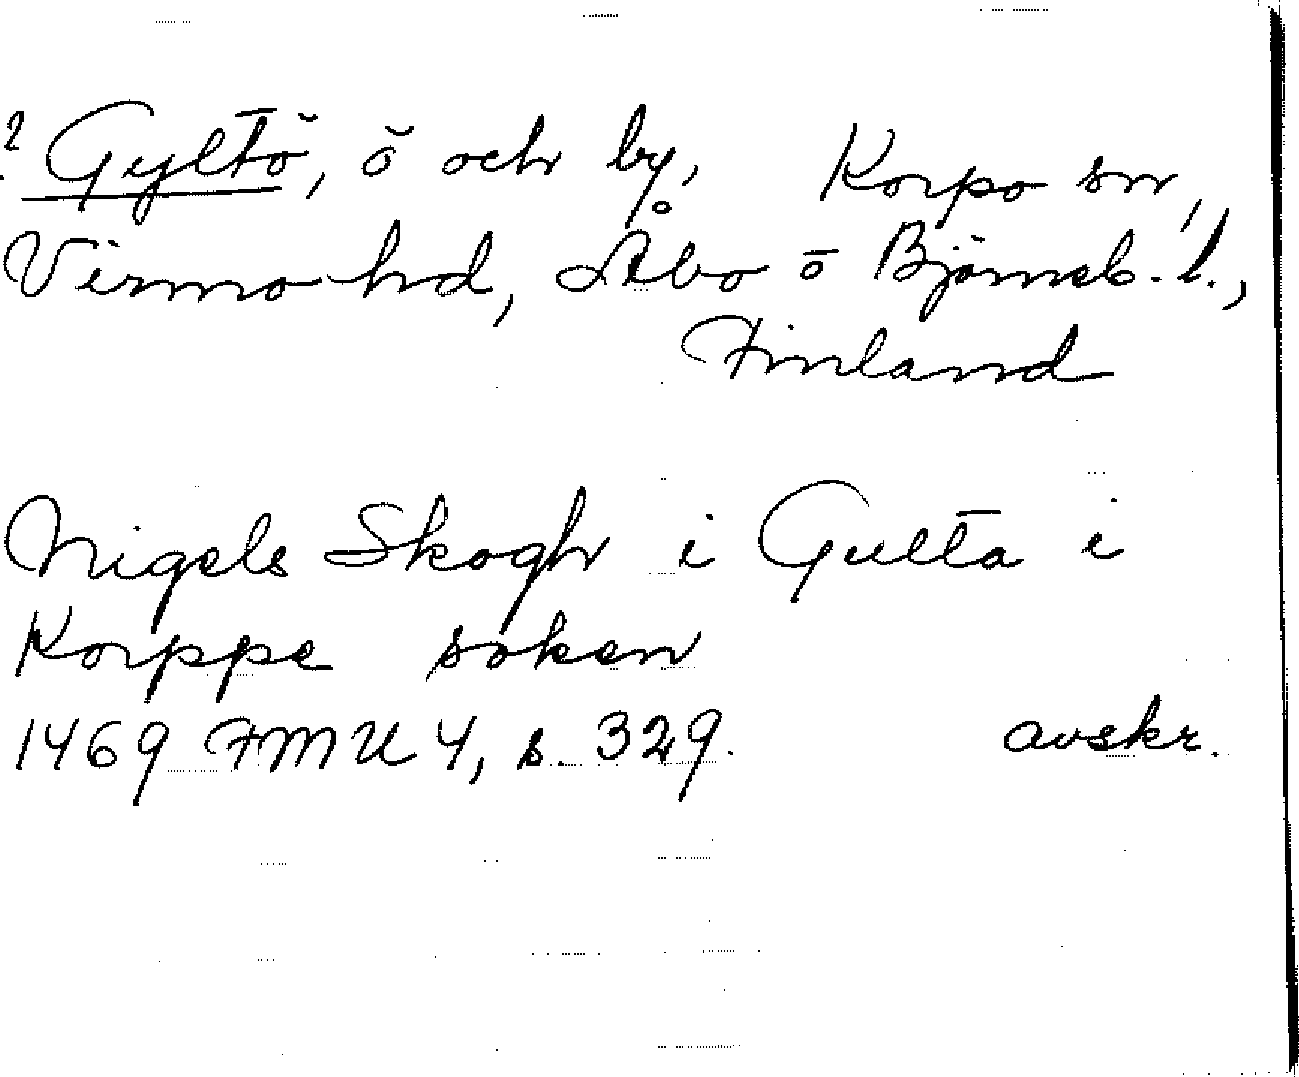 ? Gyltö, ö och by, Korpo sn,
Virmo hd, Åbo o Björneb. l.,
Finland
Nigels Skogh i Gulta i
Korppe soken
1469 FMU 4, s. 329. avskr.